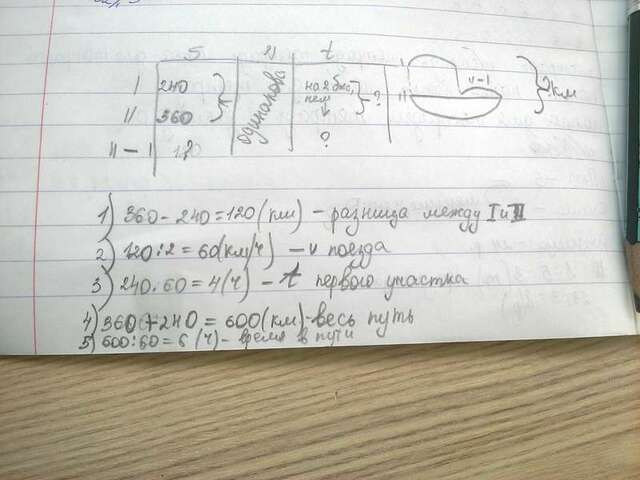 S v t
I 240 одинакова на 2 бол, I II-I ? км
чем
II 360 ? II
II - I ?
1) 360 - 240 = 120 (км) - разница между I и II
2) 120 : 2 = 60 (км/ч) - v поезда
3) 240 : 60 = 4 (ч) - t первого участка
4) 360 + 240 = 600 (км) - весь путь
5) 600 : 60 = 6 (ч) - время в пути